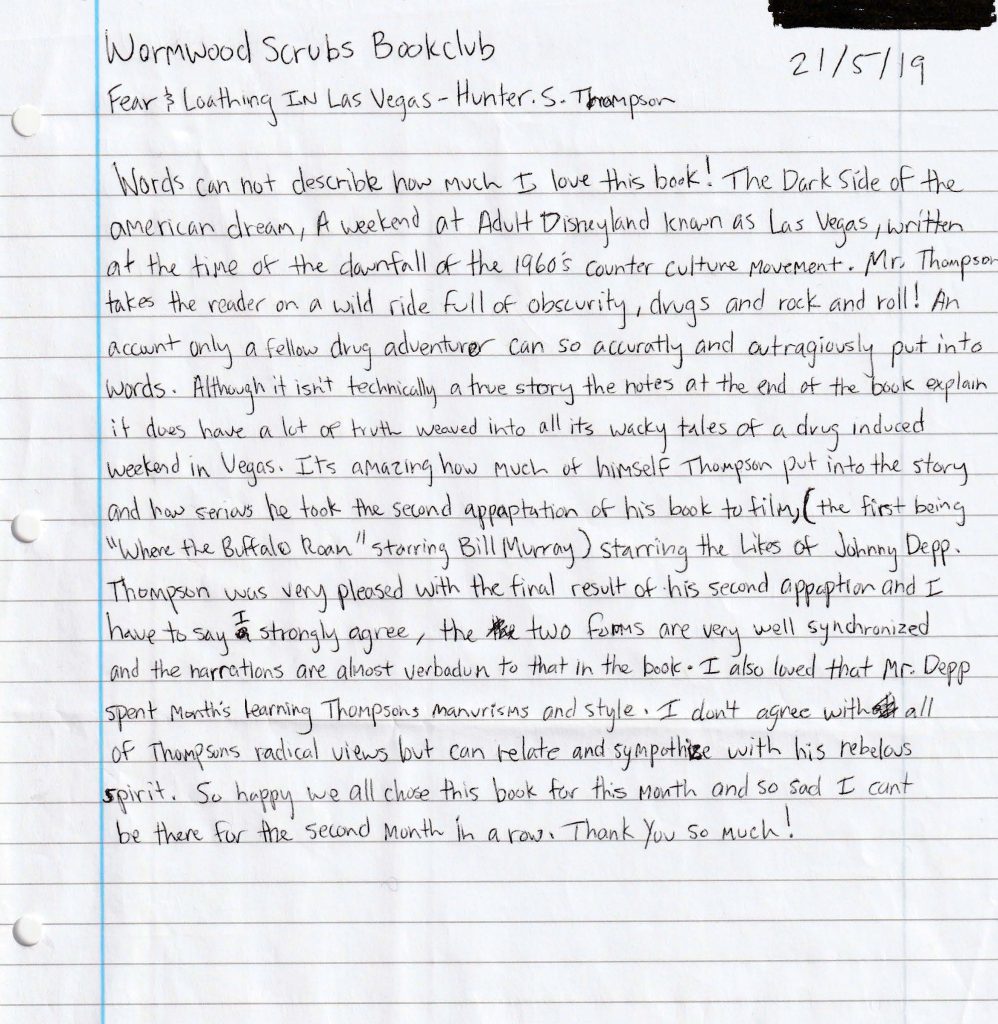 Wormwood Scrubs Bookclub
21/5/19
Fear & Loathing IN Las Vegas - Hunter. S. Thompson
Words can not describe how much I love this book! The Dark Side of the
american dream, A weekend at Adult Disneyland known as Las Vegas, written
at the time of the downfall of the 1960's counter culture movement. Mr. Thompson
takes the reader on a wild ride full of obscurity, drugs and rock and roll! An
account only a fellow drug adventurer can so accuratly and outragiously put into
words. Although it isn't technically a true story the notes at the end of the book explain
it does have a lot of truth weaved into all its wacky tales of a drug induced
weekend in Vegas. Its amazing how much of himself Thompson put into the story
and how serious he took the second appaptation of his book to film, (the first being
"Where the Buffalo Roan" starring Bill Murray) starring the Likes of Johnny Depp.
Thompson was very pleased with the final result of his second appaption and I
have to say I strongly agree, the two forms are very well synchronized
and the narrations are almost verbadum to that in the book. I also loved that Mr. Depp
spent Month's learning Thompsons manurisms and style. I don't agree with all
of Thompsons radical views but can relate and sympathize with his rebelous
spirit. So happy we all chose this book for this Month and so sad I cant
be there for the second Month in a row. Thank You so much!